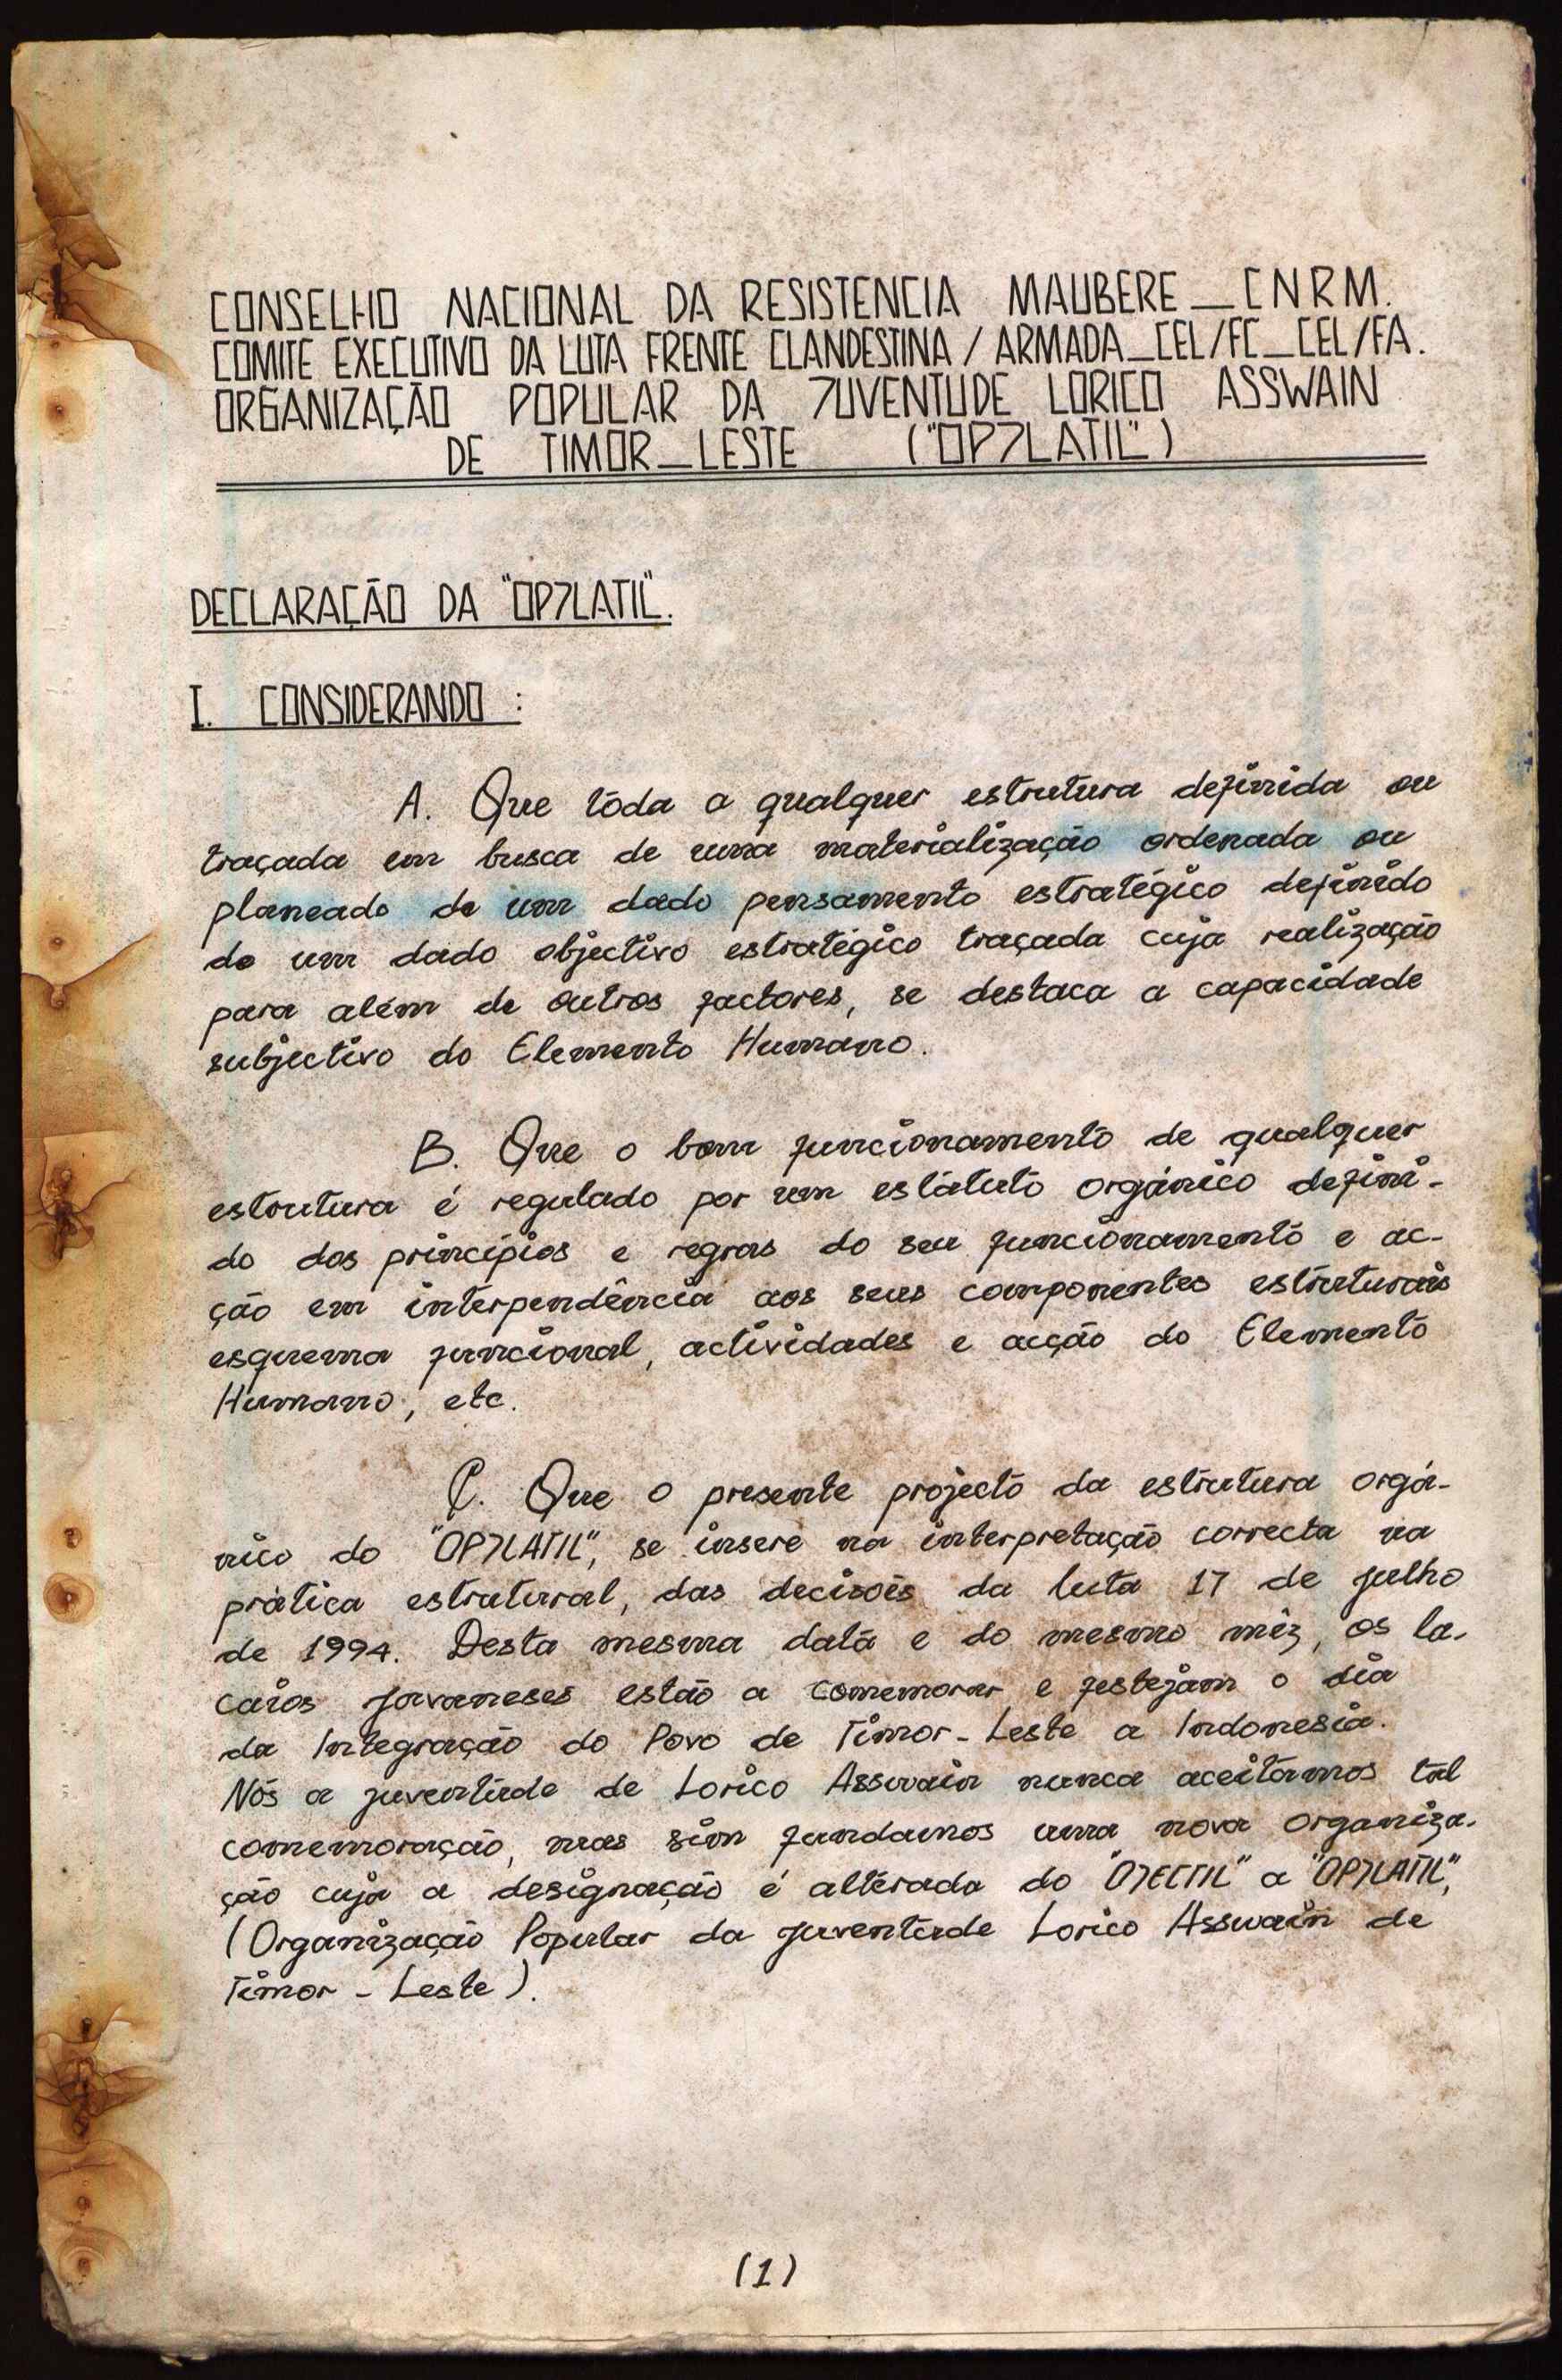 CONSELHO NACIONAL DA RESISTENCIA MAUBERE _ CNRM.
COMITE EXECUTIVO DA LUTA FRENTE CLANDESTINA / ARMADA _ CEL/FC _ CEL/FA.
ORGANIZAÇÃO POPULAR DA JUVENTUDE LORICO ASSWAIN
DE TIMOR _ LESTE ("OPJLATIL")
DECLARAÇÃO DA "OPJLATIL".
I. CONSIDERANDO :
A. Que tôda a qualquer estrutura definida ou
traçada em busca de uma materialização ordenada ou
planeado de um dado pensamento estratégico definido
do um dado objectivo estratégico traçada cuja realização
para além de outros factores, se destaca a capacidade
subjectivo do Elemento Humano.
B. Que o bom funcionamento de qualquer
estrutura é regulado por um estátuto orgánico defini-
do dos princípios e regras do seu funcionamento e ac-
ção em interpendência aos seus componentes estruturais
esquema funcional, actividades e acção do Elemento
Humano, etc.
C. Que o presente projecto da estrutura orgá-
nico do "OPJLATIL", se insere na interpretação correcta na
prática estrutural, das decisões da luta 17 de Julho
de 1994. Desta mesma data e do mesmo mêz, os la-
caios Javaneses estão a comemorar e festejam o dia
da Integração do Povo de Timor - Leste a Indonesia.
Nós a juventude de Lorico Asswain nunca aceitámos tal
comemoração, mas sim fundamos uma nova organiza-
ção cuja a designação é altérada do "OJECTIL" a "OPJLATIL",
(Organização Popular da Juventude Lorico Asswain de
Timor - Leste).
(1)